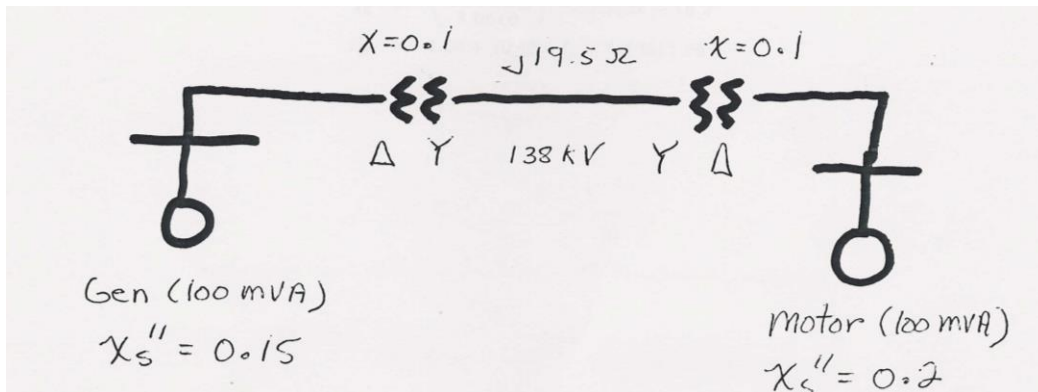 X=0.1
j19.5 Ω
x=0.1
Δ Y 138 KV Y Δ
Gen (100 mVA)
Xs" = 0.15
motor (100 mVA)
Xs" = 0.2